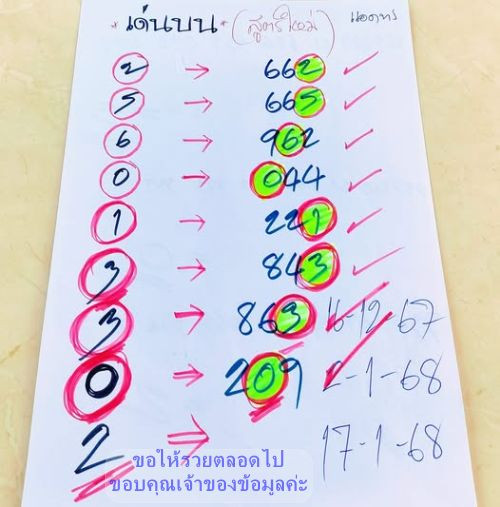 * เด่นบน * (สูตรใหม่)
2 → 662 ✓
5 → 665 ✓
6 → 962 ✓
0 → 044 ✓
1 → 221 ✓
3 → 843 ✓
3 → 863 16-12-67
0 → 209 2-1-68
2 ⇒ 17-1-68
ขอให้รวยตลอดไป
ขอบคุณเจ้าของข้อมูลค่ะ